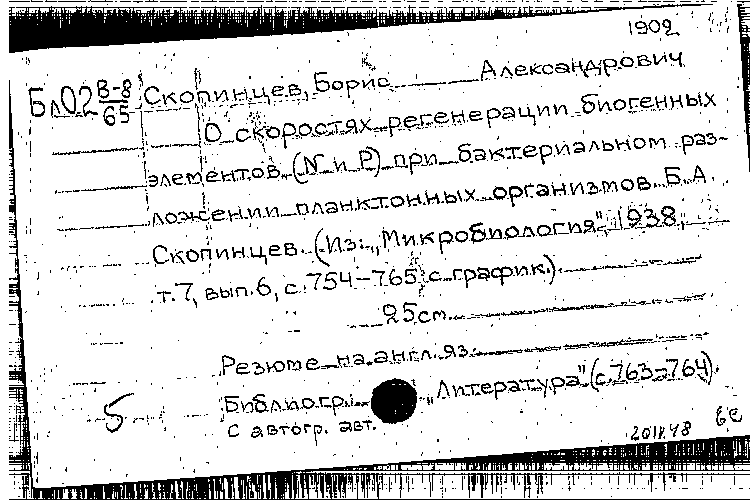 1902
Бл02 В-8/65 Скопинцев, Борис Александрович
О скоростях регенерации биогенных
элементов (N и P) при бактериальном раз-
ложении планктонных организмов. Б.А.
Скопинцев. (Из: „Микробиология", 1938,
т.7, вып.6, с.754-765 с график.)
25 см.
Резюме на англ. яз.
Библиогр.: „Литература" (с.763-764).
5
С автогр. авт.